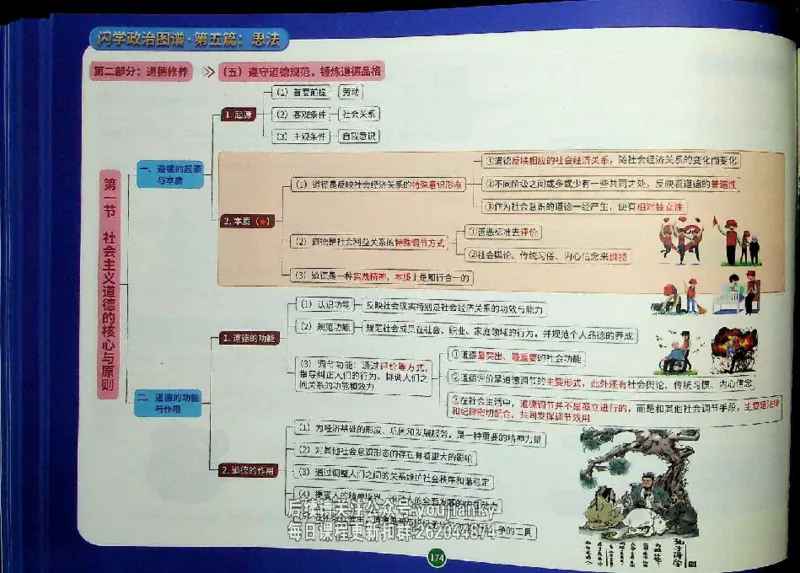 闪学政治图谱·第五篇：思法
第二部分：道德修养
（五）遵守道德规范，锤炼道德品格
第一节 社会主义道德的核心与原则
一、道德的起源与本质
1. 起源
（1）首要前提
劳动
（2）客观条件
社会关系
（3）主观条件
自我意识
2. 本质（★）
（1）道德是反映社会经济关系的特殊意识形态
①道德反映相应的社会经济关系，随社会经济关系的变化而变化
②不同阶级之间或多或少有一些共同之处，反映着道德的普遍性
③作为社会意识的道德一经产生，便有相对独立性
（2）道德是社会利益关系的特殊调节方式
①善恶标准去评价
②社会舆论、传统习俗、内心信念来维持
（3）道德是一种实践精神，本质上是知行合一的
二、道德的功能与作用
1. 道德的功能
（1）认识功能
反映社会现实特别是社会经济关系的功效与能力
（2）规范功能
规范社会成员在社会、职业、家庭领域的行为，并规范个人品德的养成
（3）调节功能：通过评价等方式，
指导纠正人们的行为，协调人们之
间关系的功能和效力
①道德最突出、最重要的社会功能
②道德评价是道德调节的主要形式，此外还有社会舆论、传统习惯、内心信念
③在社会生活中，道德调节并不是孤立进行的，而是和其他社会调节手段，主要是法律
和纪律密切配合、共同发挥调节效用
2. 道德的作用
（1）为经济基础的形成、巩固和发展服务，是一种重要的精神力量
（2）对其他社会意识形态的存在有着重大的影响
（3）通过调整人们之间的关系维护社会秩序和谐稳定
（4）提高人的精神境界
争的工具
后续请关注公众号:youjianky
每日课程更新扣群:262044874
孔子讲学
174